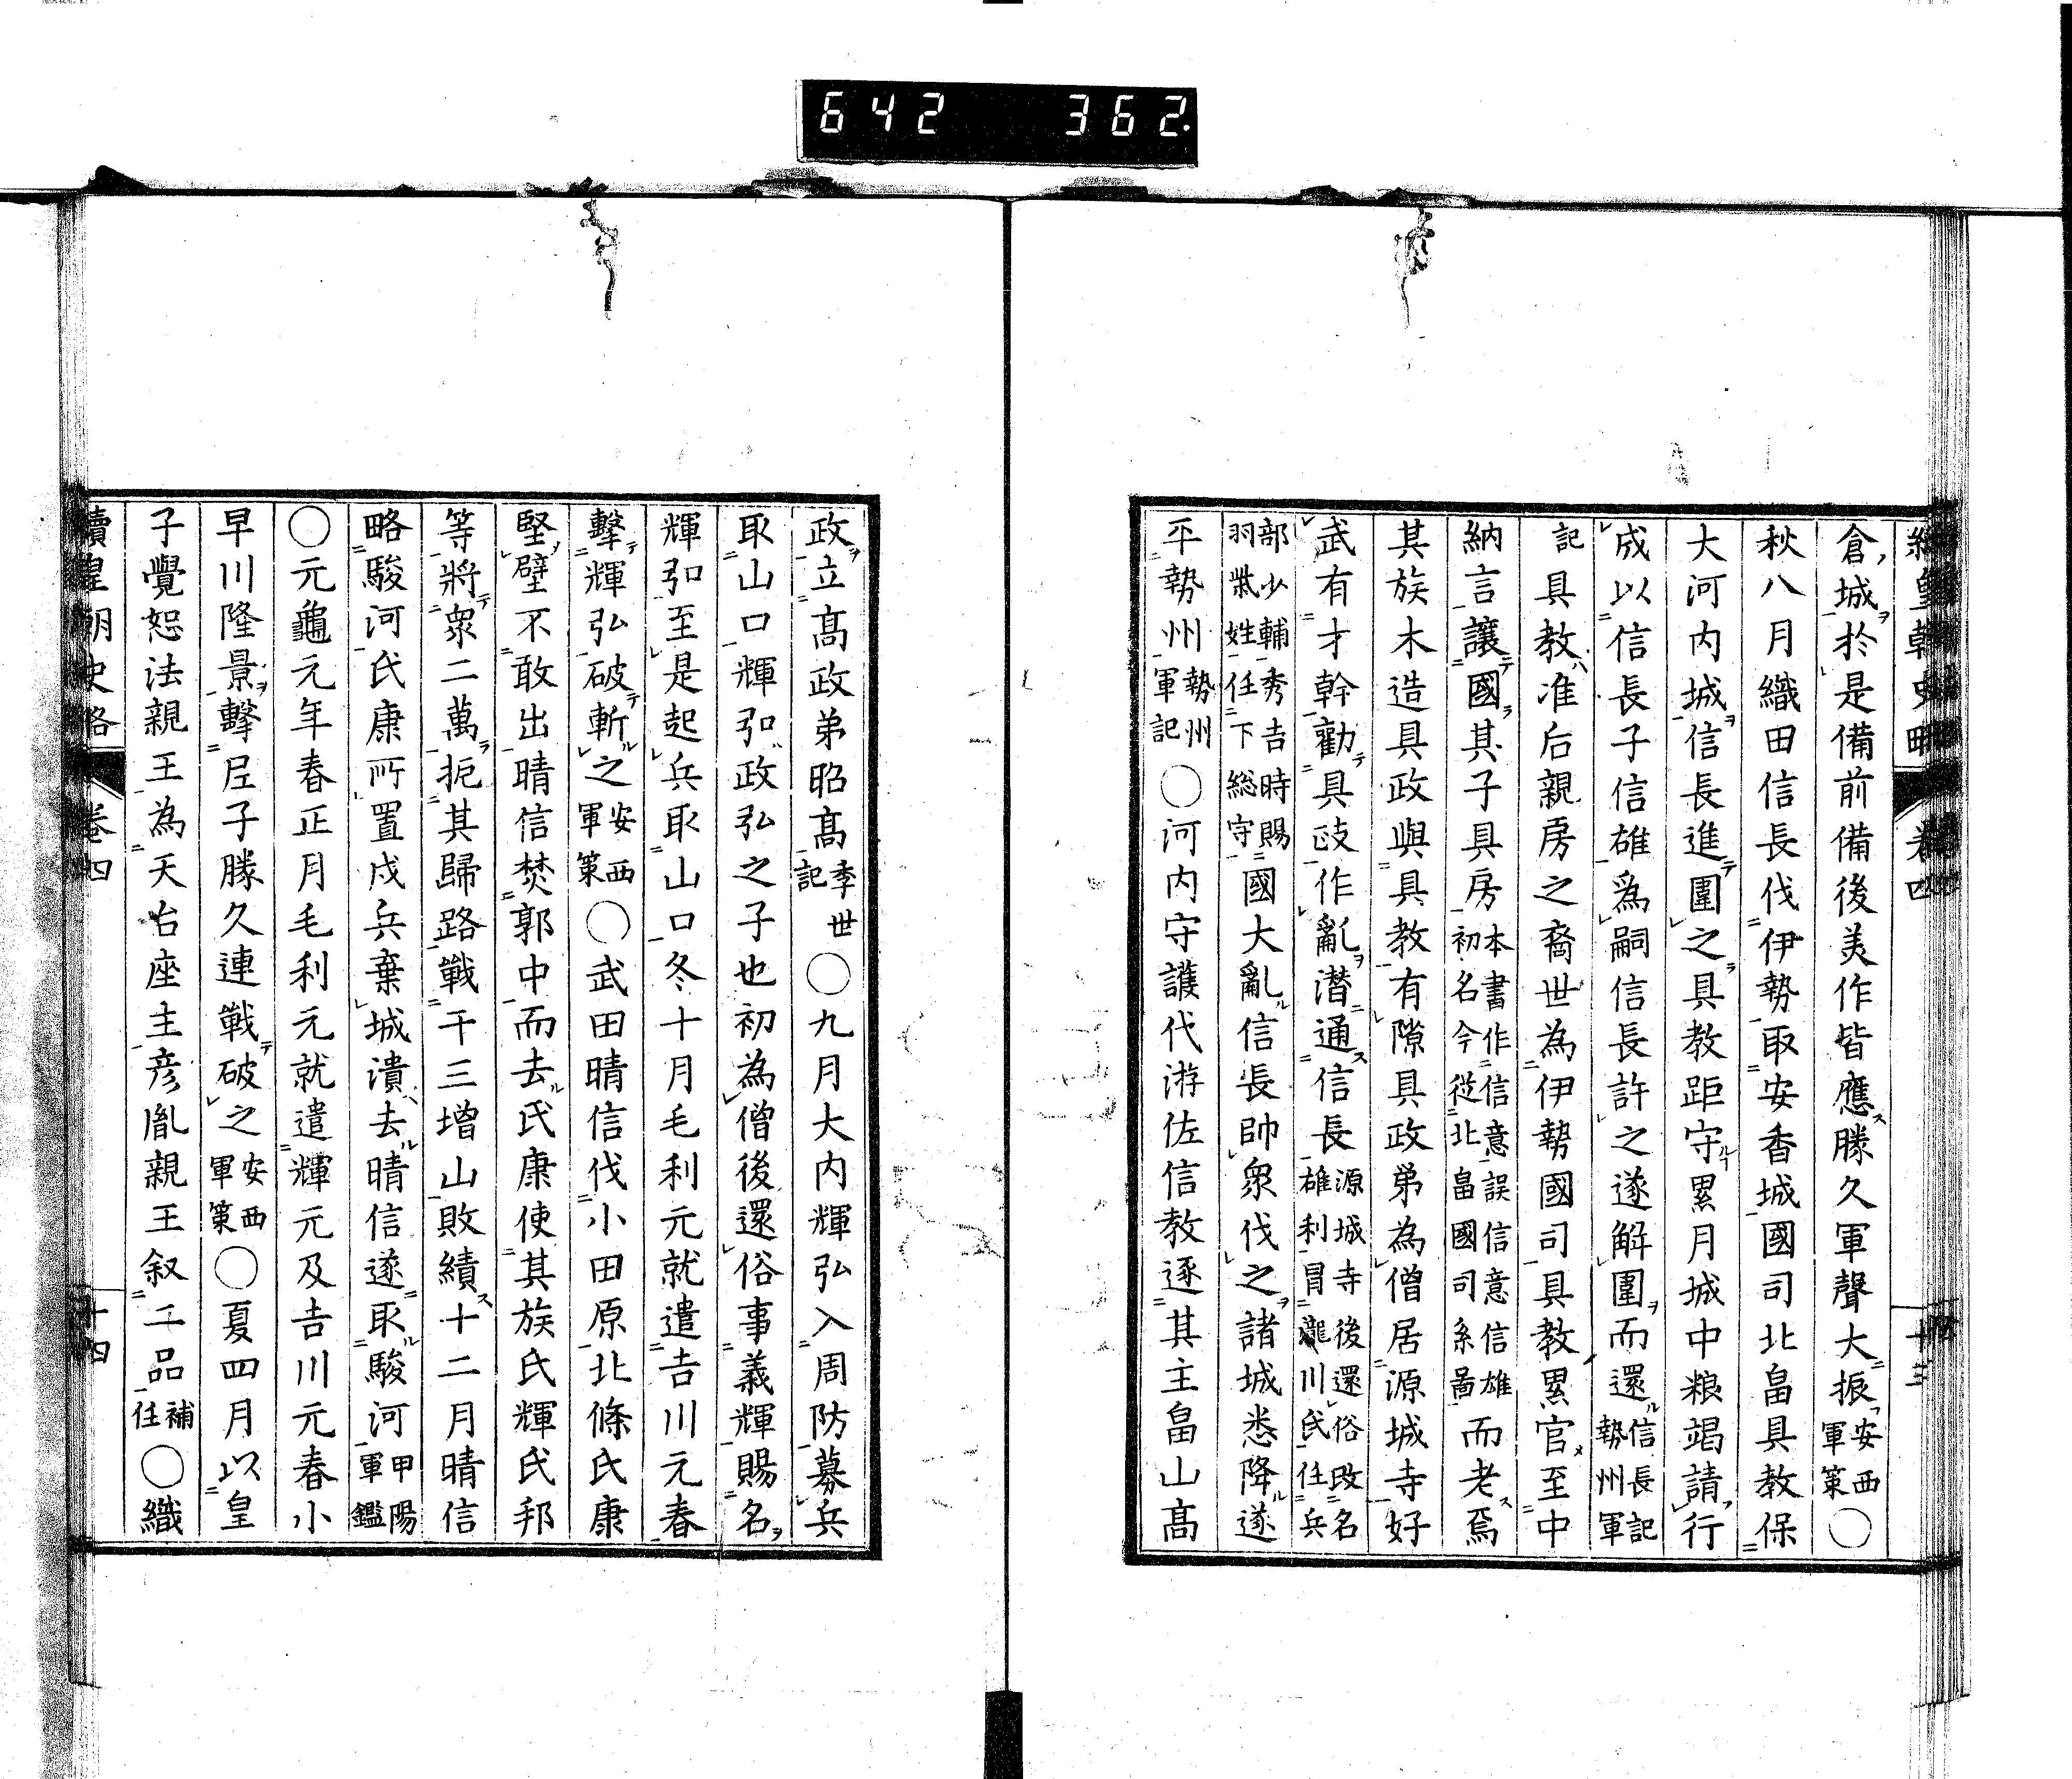 642 362
續皇朝史略 卷四 十三
倉城於是備前備後美作皆應勝久軍聲大振安西軍策〇
秋八月織田信長伐伊勢取安香城國司北畠具教保
大河內城信長進圍之具教距守累月城中粮竭請行
成以信長子信雄爲嗣信長許之遂解圍而還信長記勢州軍
記具教准后親房之裔世為伊勢國司具教累官至中
納言讓國其子具房本書作信意誤信意信雄初名今從北畠國司系啚而老焉
其族木造具政與具教有隙具政弟為僧居源城寺好
武有才幹勸具政作亂潛通信長源城寺後還俗改名雄利冒瀧川氏任兵
部少輔秀吉時賜羽柴姓任下総守國大亂信長帥衆伐之諸城悉降遂
平勢州勢州軍記〇河內守護代游佐信教逐其主畠山高
政立高政弟昭高季世記〇九月大內輝弘入周防募兵
取山口輝弘政弘之子也初為僧後還俗事義輝賜名
輝弘至是起兵取山口冬十月毛利元就遣吉川元春
擊輝弘破斬之安西軍策〇武田晴信伐小田原北條氏康
堅壁不敢出晴信焚郭中而去氏康使其族氏輝氏邦
等將衆二萬扼其歸路戰于三增山敗績十二月晴信
略駿河氏康所置戍兵棄城潰去晴信遂取駿河甲陽軍鑑
〇元龜元年春正月毛利元就遣輝元及吉川元春小
早川隆景擊尼子勝久連戰破之安西軍策〇夏四月以皇
子覺恕法親王為天台座主彥胤親王叙二品補任〇織
續皇朝史略 卷四 十四